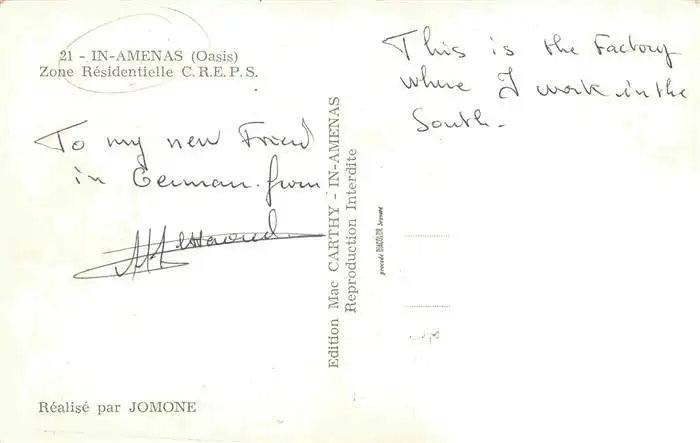 21 - IN-AMENAS (Oasis)
Zone Résidentielle C.R.E.P.S.
To my new Friend
in German. from
This is the Factory
where I work in the
South-
Edition Mac CARTHY - IN-AMENAS
Reproduction Interdite
procédé DIACOLOR breveté
Réalisé par JOMONE